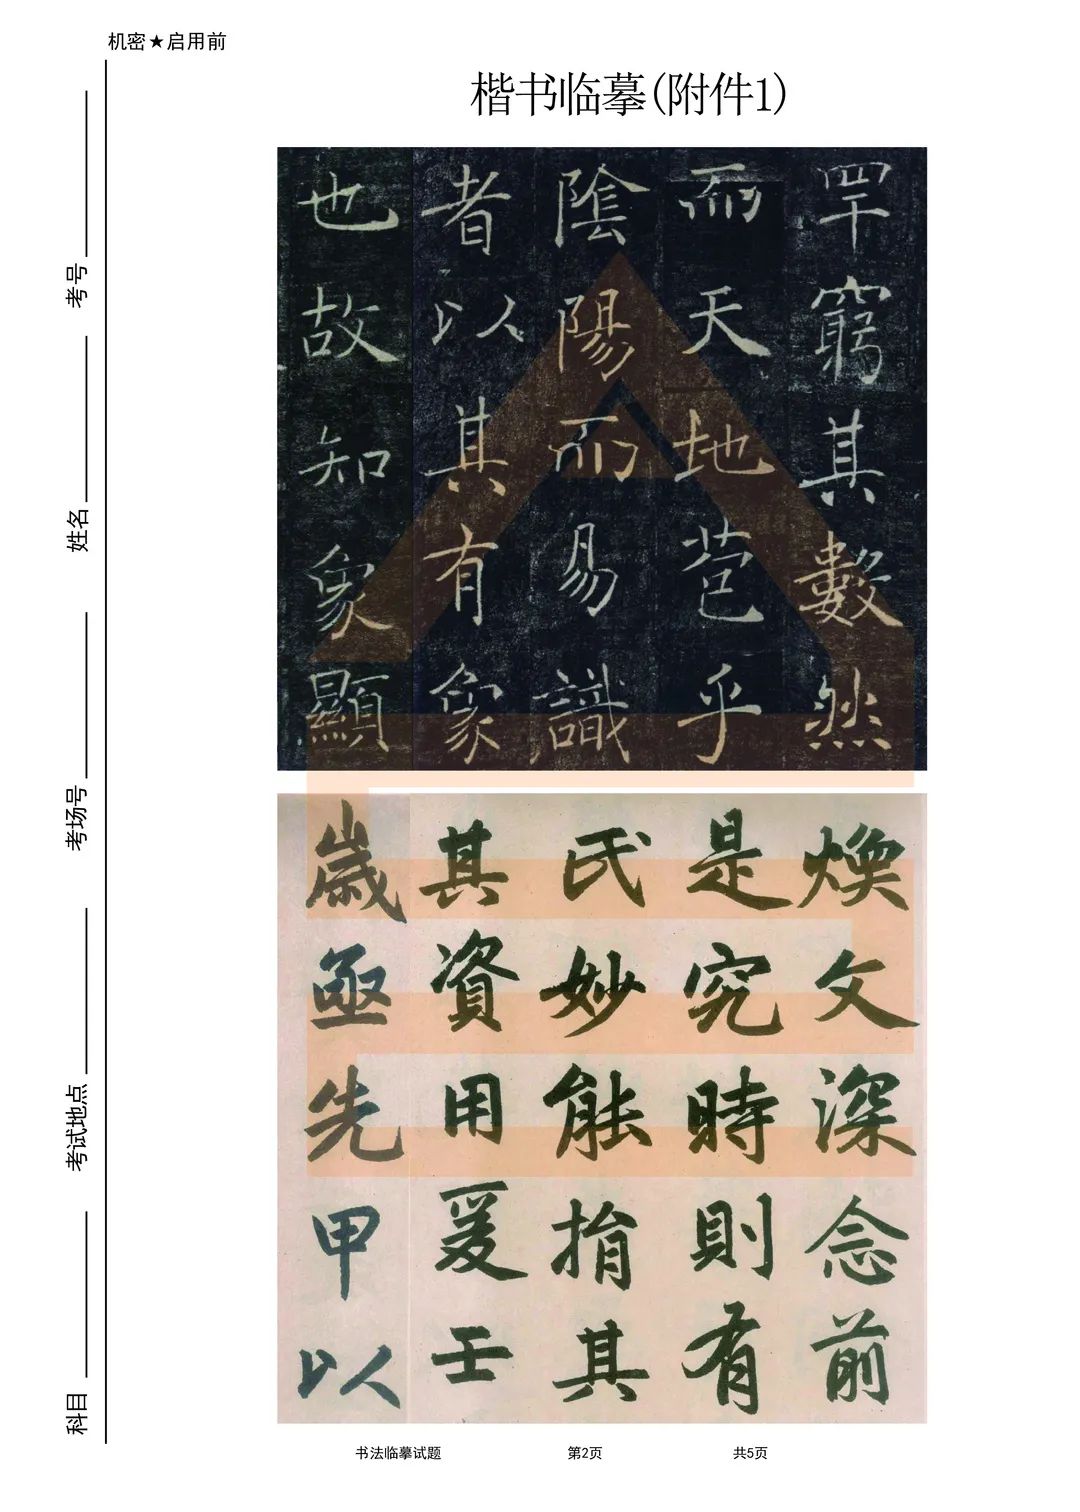 机密★启用前
楷书临摹(附件1)
考号
姓名
考场号
考试地点
科目
罕窮其數然
而天地苞乎
陰陽而易識
者以其有象
也故知象顯
煥文深念前
是究時則有
氏妙能揹其
其資用爰壬
歲亟先甲以
书法临摹试题 第2页 共5页